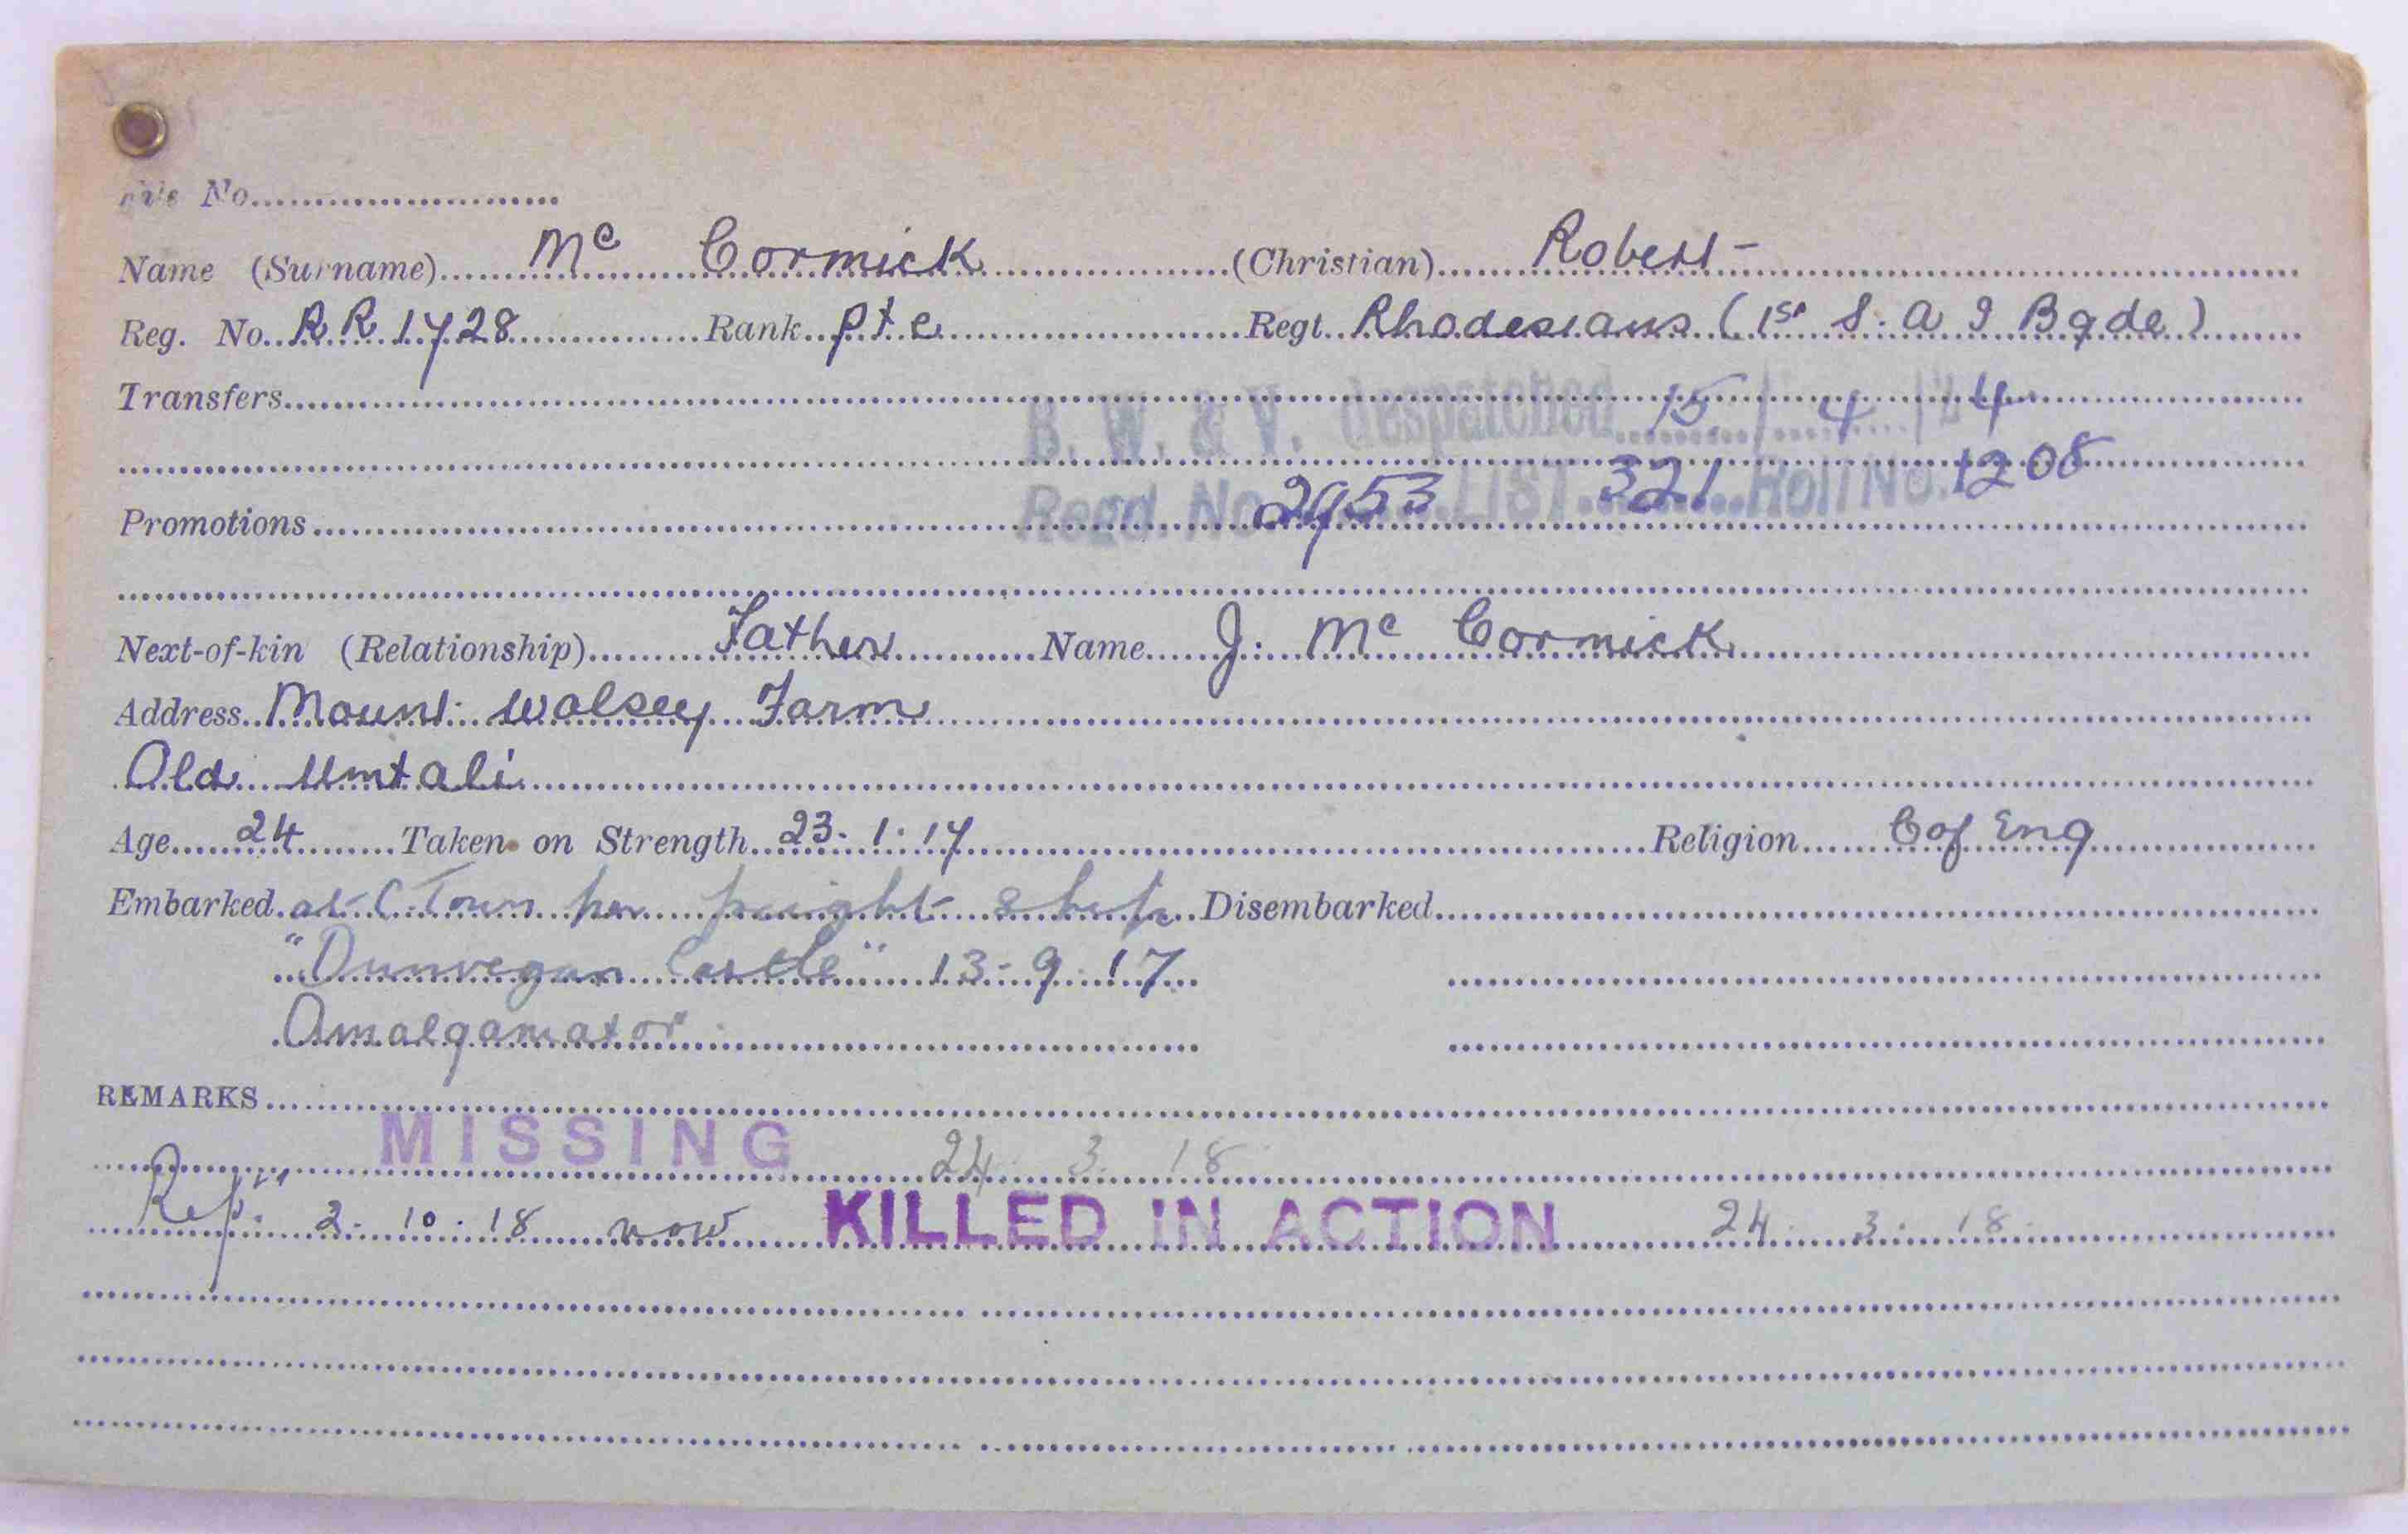 File No.
Name (Surname) Mc Cormick (Christian) Robert
Reg. No. R R 1728 Rank Pte Regt. Rhodesians (1st S. A I Bgde)
Transfers
B. W. & V. despatched 15 / 4 / 24
Regd. No. 2953 LIST 321 Roll No. 1208
Promotions
Next-of-kin (Relationship) Father Name J. Mc Cormick
Address Mount Wolsey Farm
Old Umtali
Age 24 Taken on Strength 23. 1. 17 Religion C of Eng
Embarked at C. Town per freight ship Disembarked
"Dunvegan Castle" 13-9-17
Amalgamator
REMARKS
MISSING 24. 3. 18
Rep. 2. 10. 18 now KILLED IN ACTION 24. 3. 18.